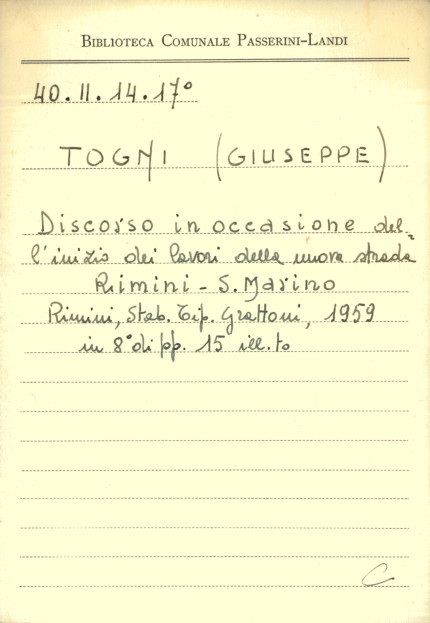 BIBLIOTECA COMUNALE PASSERINI-LANDI
40.II.14.17°
TOGNI (GIUSEPPE)
Discorso in occasione del=
l'inizio dei lavori della nuova strada
Rimini - S. Marino
Rimini, Stab. Tip. Grattoni, 1959
in 8° di pp. 15 ill.to
C